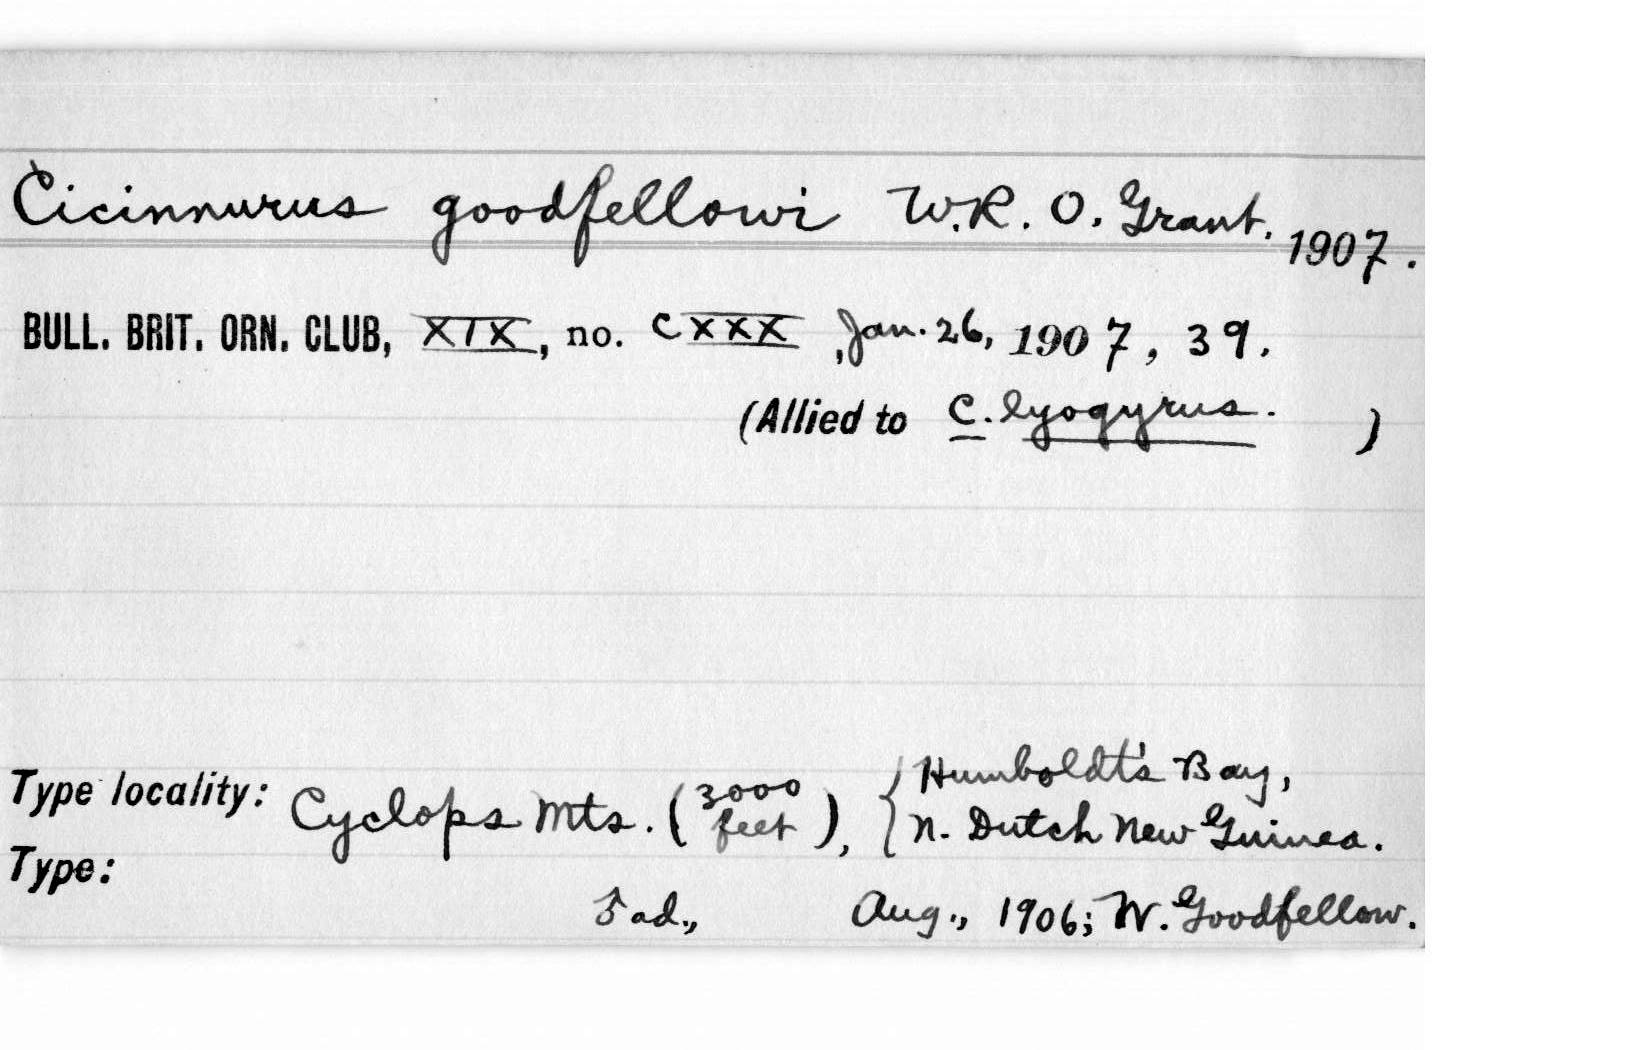 Cicinnurus goodfellowi W.R. O. Grant. 1907.
BULL. BRIT. ORN. CLUB, XIX, no. CXXX, Jan. 26, 1907, 39.
(Allied to C. lyogyrus. )
Type locality: Cyclops Mts. (3000 feet), { Humboldt's Bay,
N. Dutch New Guinea.
Type:
♂ ad., Aug., 1906; W. Goodfellow.